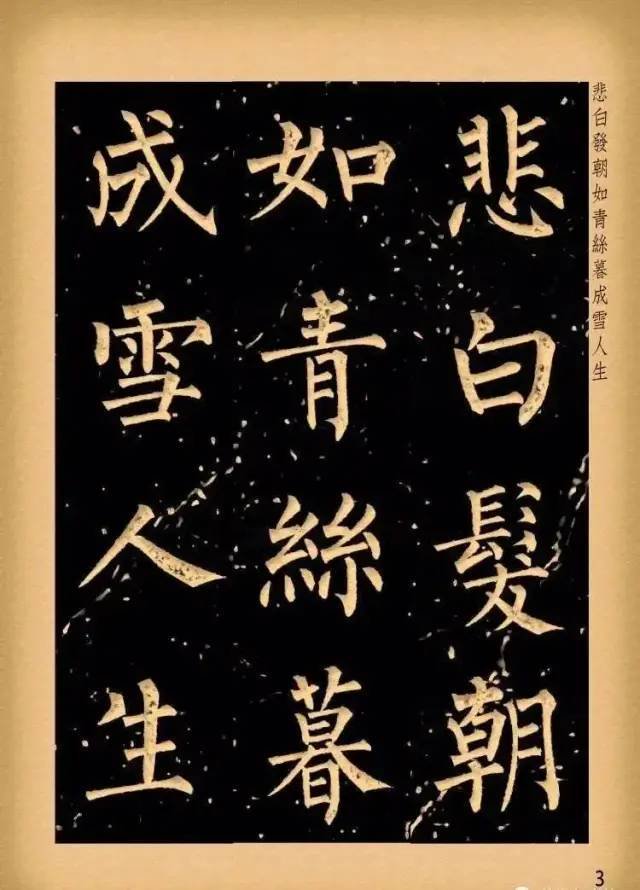 悲白髮朝
如青絲暮
成雪人生
悲白發朝如青絲暮成雪人生
3